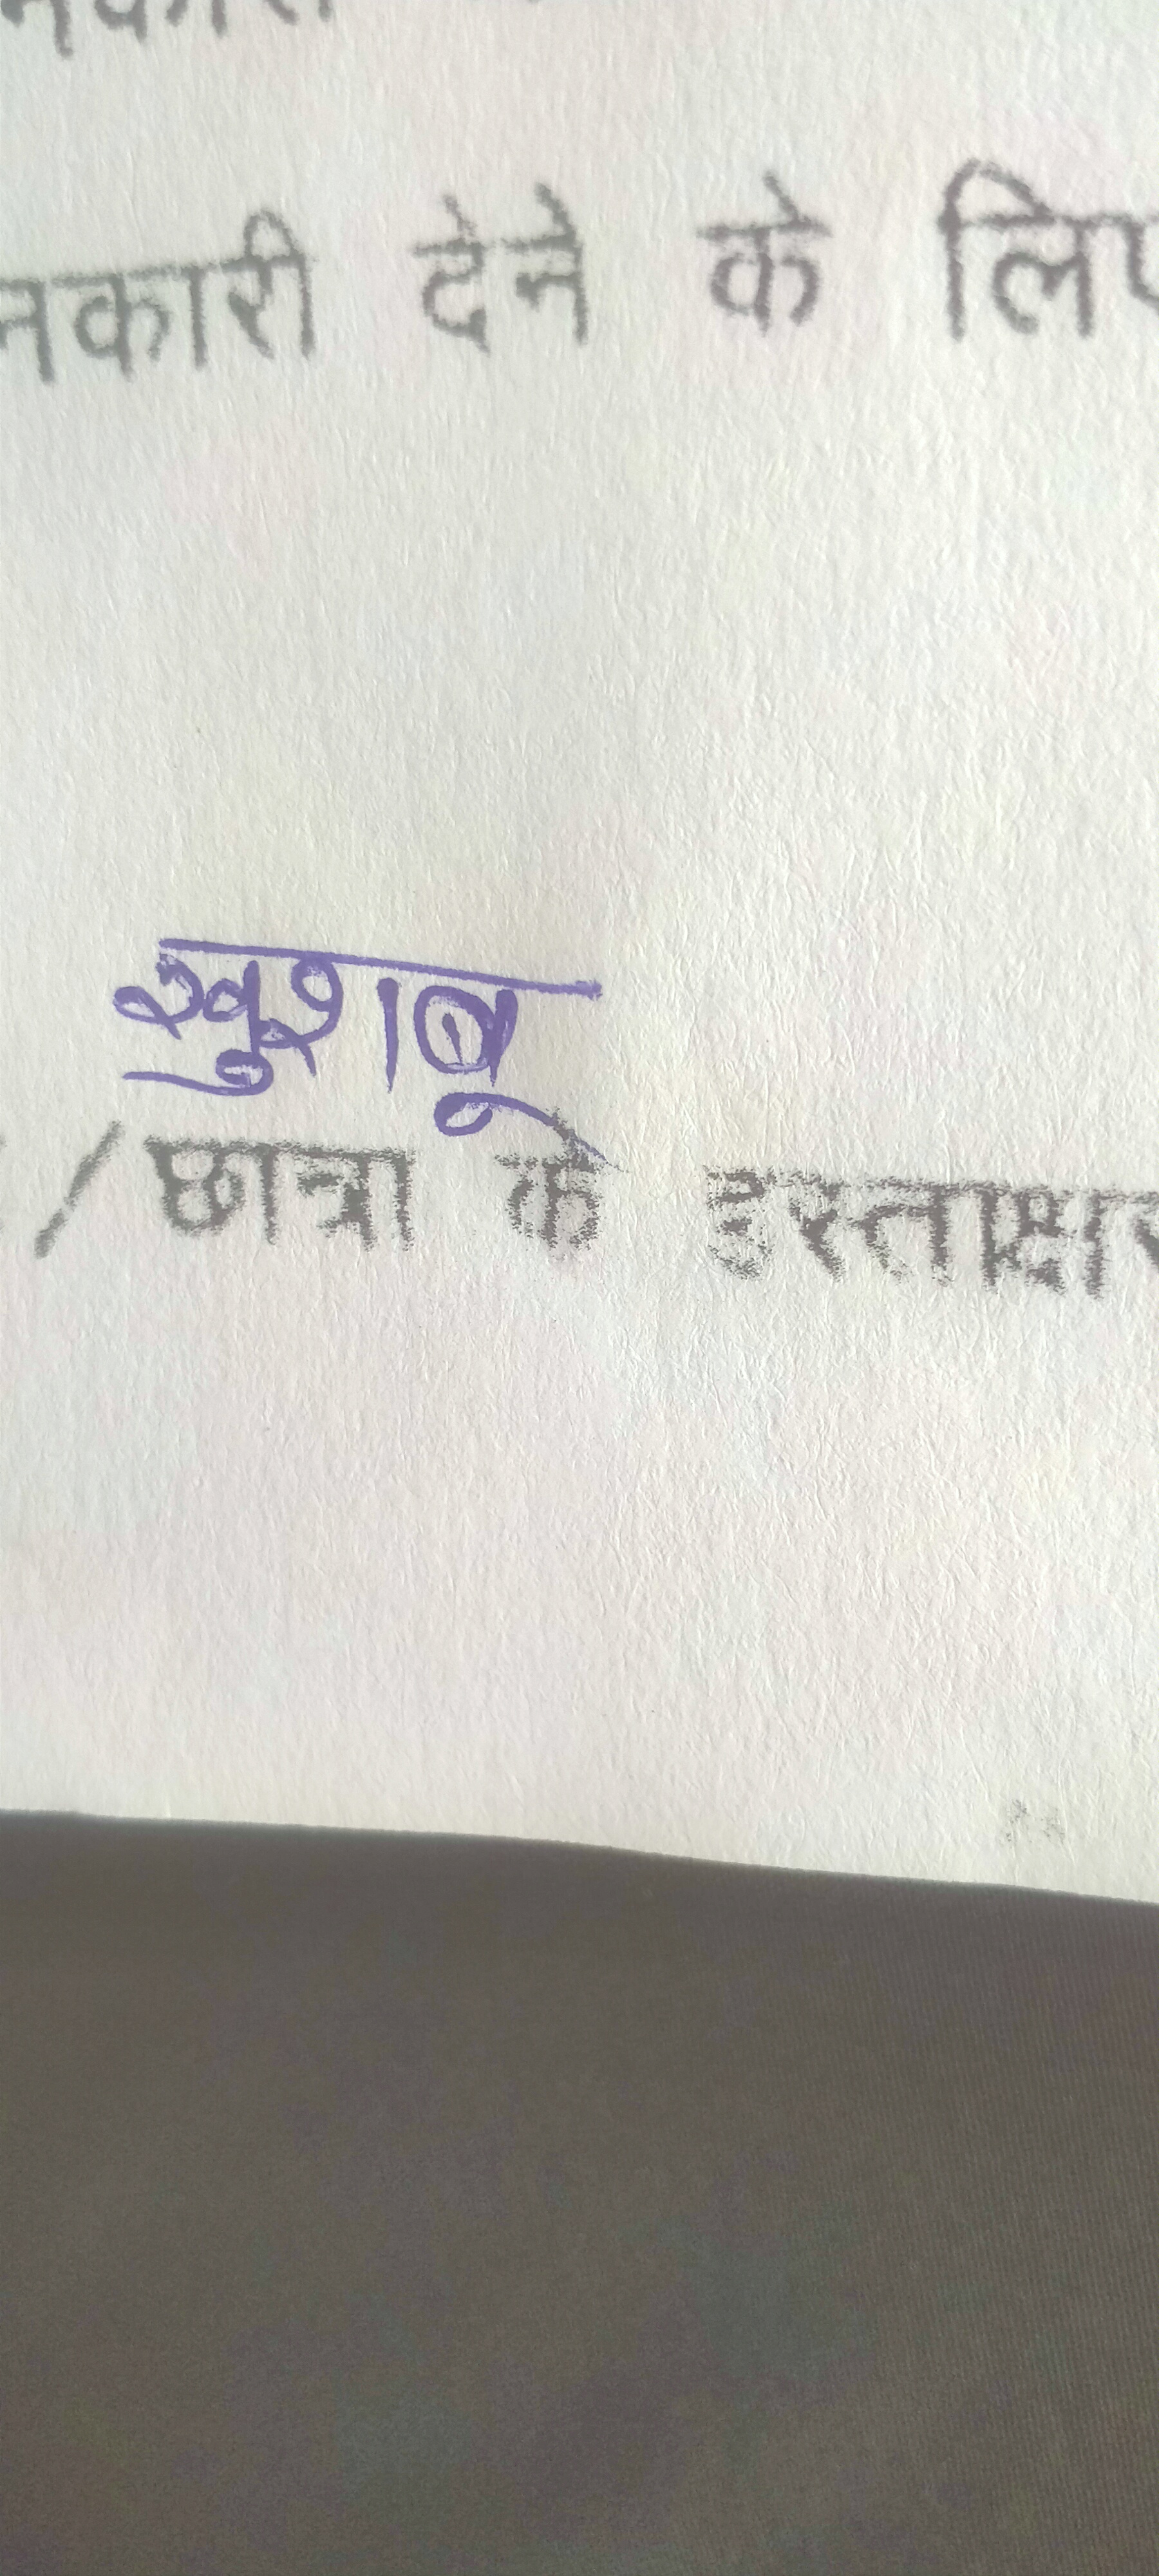 नकारी देने के लिए
खुशबू
/छात्रा के हस्ताक्षर